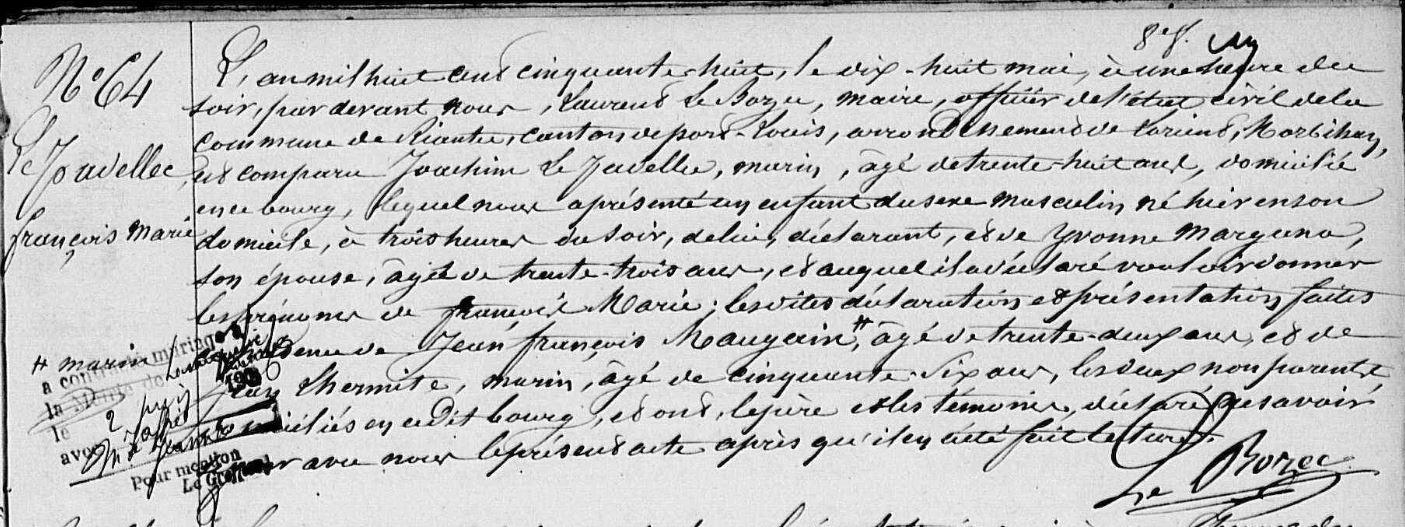 N° 64
Le Joudellec,
françois marie
L'an mil huit cent cinquante-huit, le dix-huit mai, à une heure du
soir, pardevant nous, Laurent Le Bozec, maire, officier de l'état civil de la
commune de Riantec, canton de port-Louis, arrondissement de Lorient, Morbihan,
est comparu Joachim Le marin, âgé de trente-huit ans, domicilié
en ce bourg, lequel nous a présenté un enfant du sexe masculin né hier en son
domicile, à trois heures du soir, de lui, déclarant, et de Yvonne
son épouse, âgée de trente-trois ans, et auquel il a déclaré vouloir donner
les prénoms de françois Marie; lesdites déclaration et présentation faites
en présence de Jean françois âgé de trente-deux ans, et de
Lhermite, marin, âgé de cinquante-six ans, les deux non parents
domiciliés en cedit bourg, et ont, le père et les témoins, déclaré ne savoir
signer avec nous le présent acte après qu'il en a été fait lecture.
Le Bozec
# marin
a contracté mariage à
la Mairie de
le 2 juin 1906
avec
Pour mention
Le Greffier